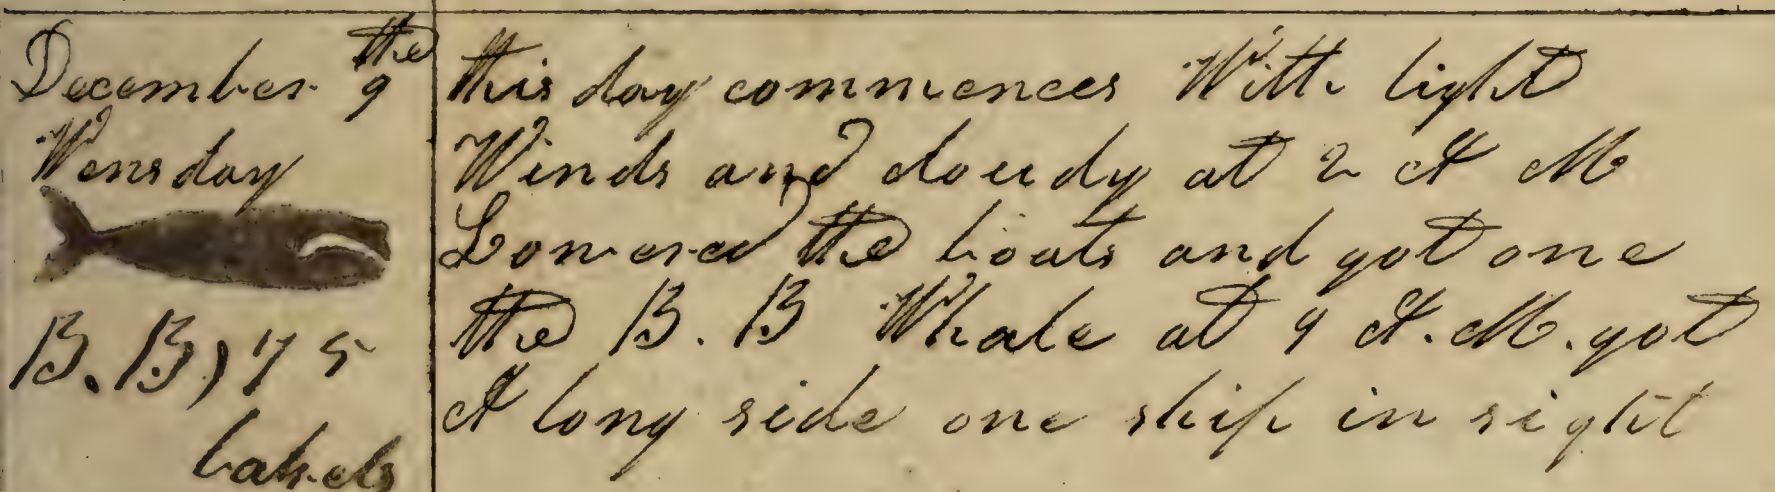 December the 9
Wensday
B.B) 75
barels
this day commences With light
Winds and cloudy at 2 A M
Lowered the boats and got one
the B. B Whale at 9 A.M. got
A long side one ship in sight